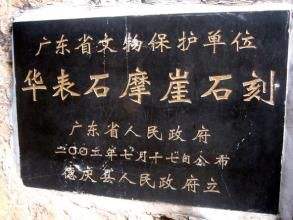 广东省文物保护单位
华表石摩崖石刻
广东省人民政府
二〇〇二年七月十七日公布
德庆县人民政府立